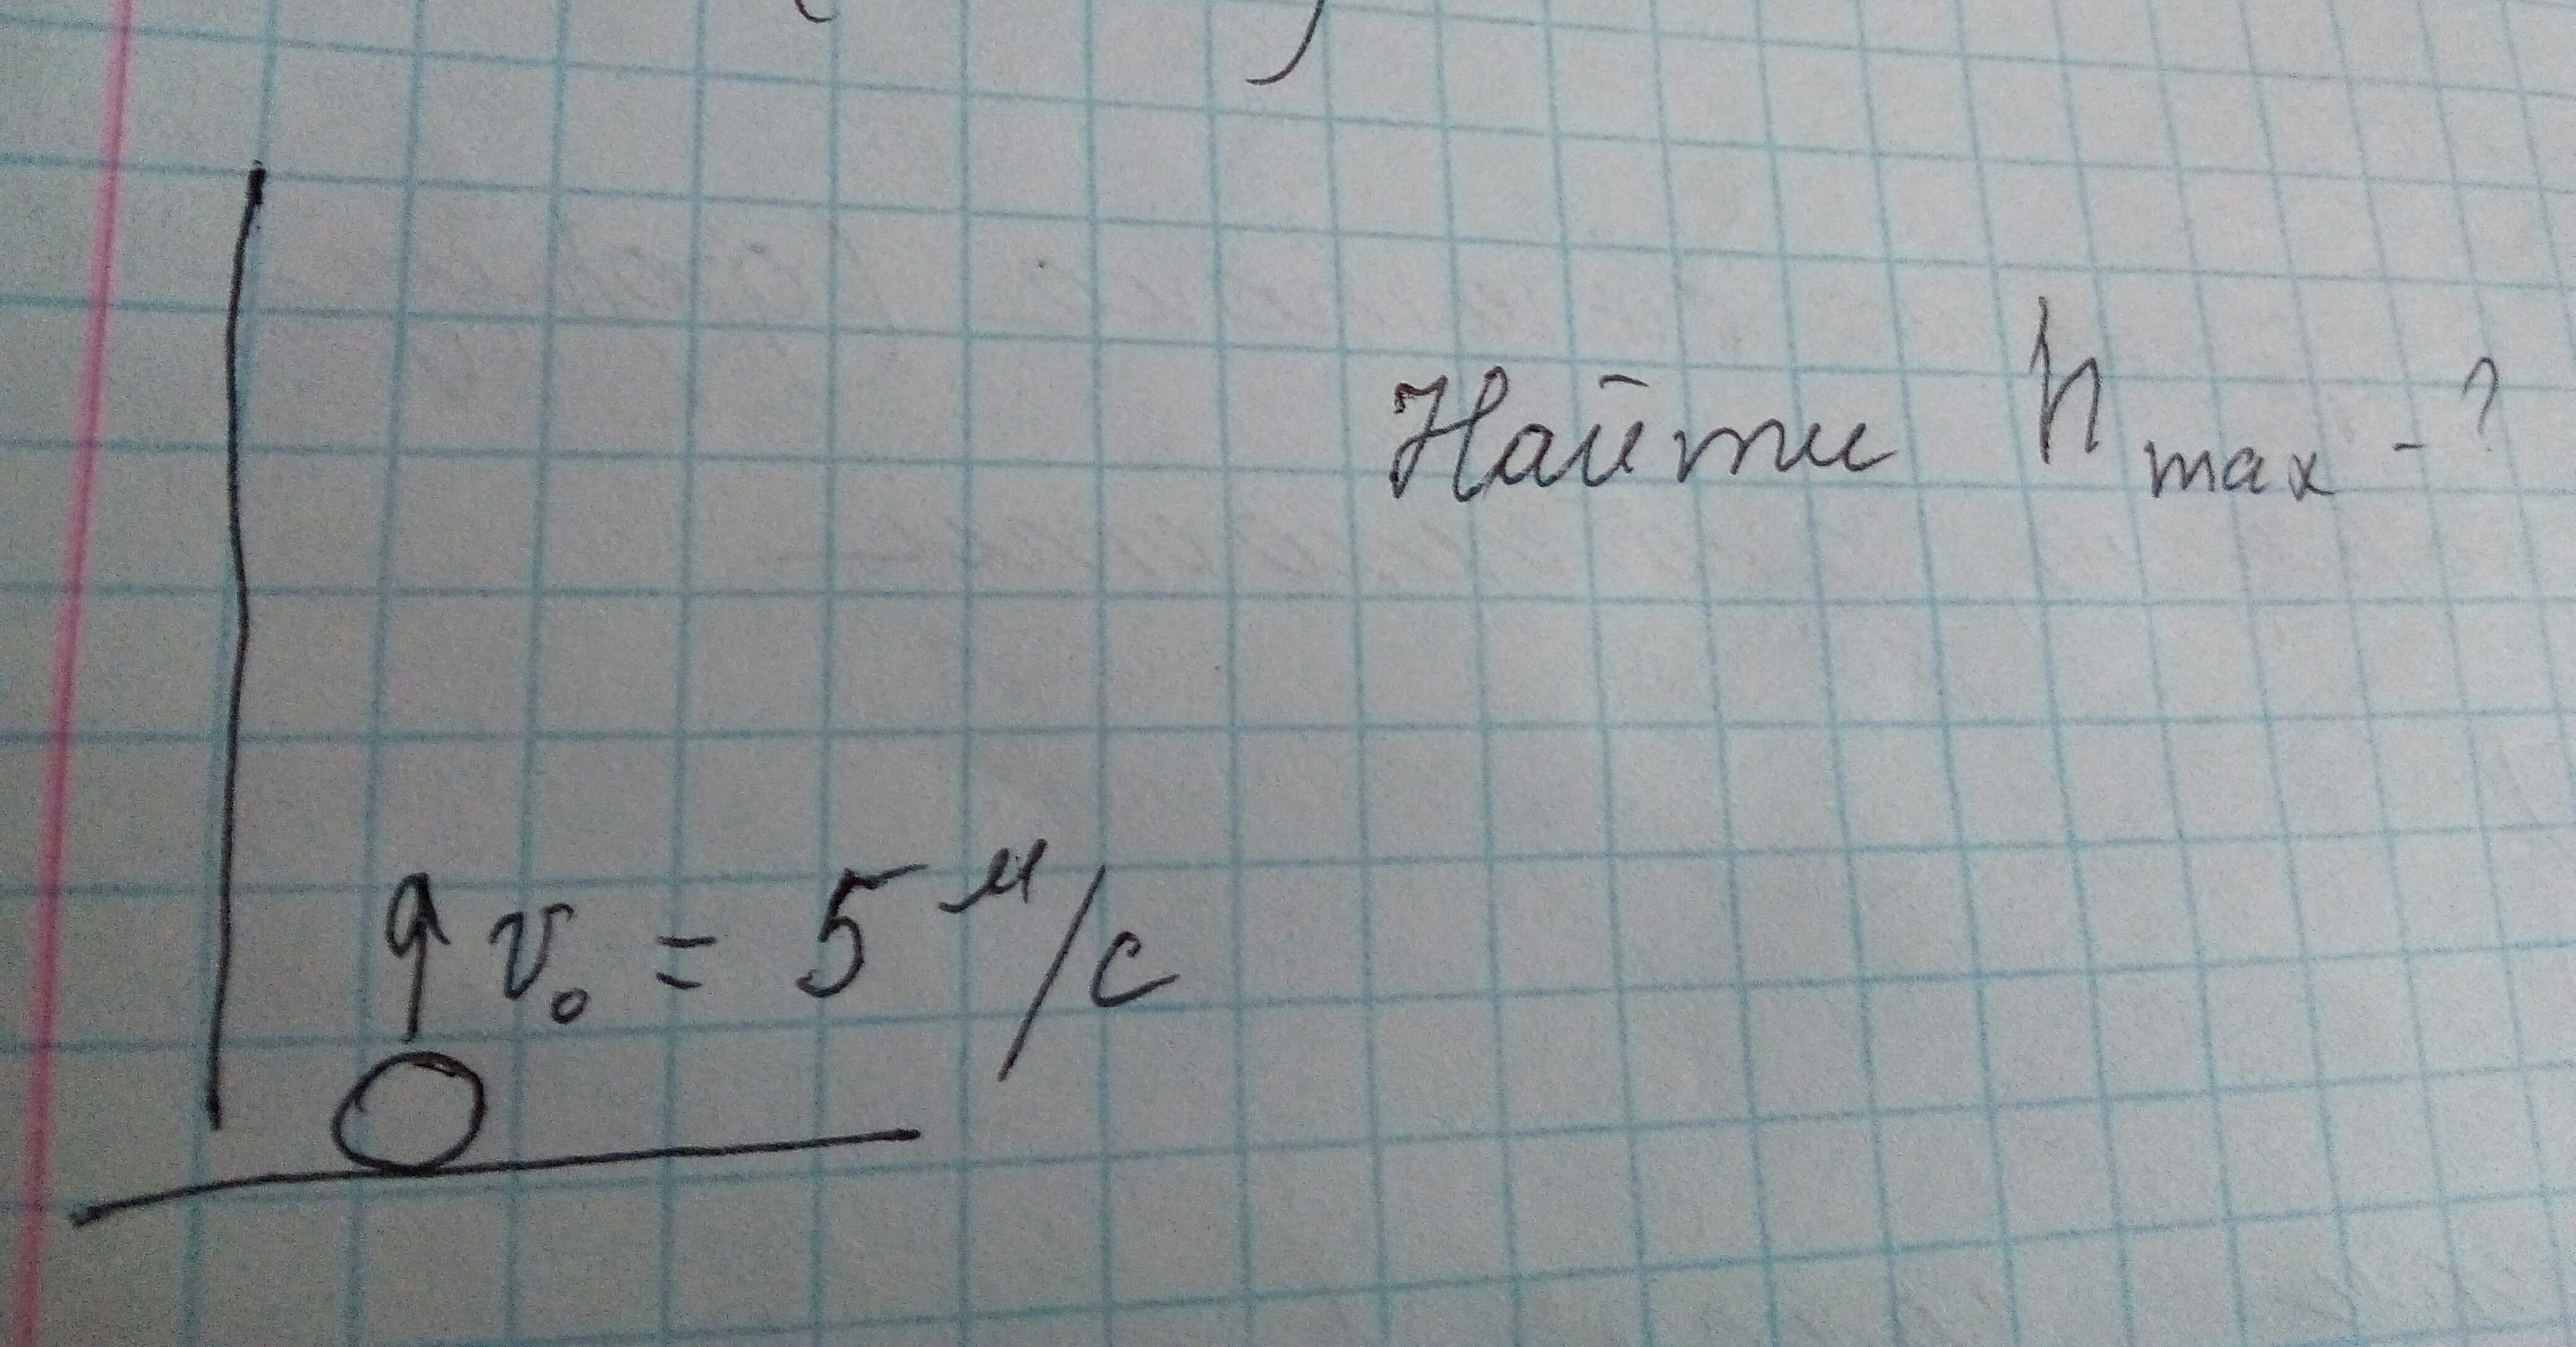 Найти h max - ?
v₀ = 5 м/с